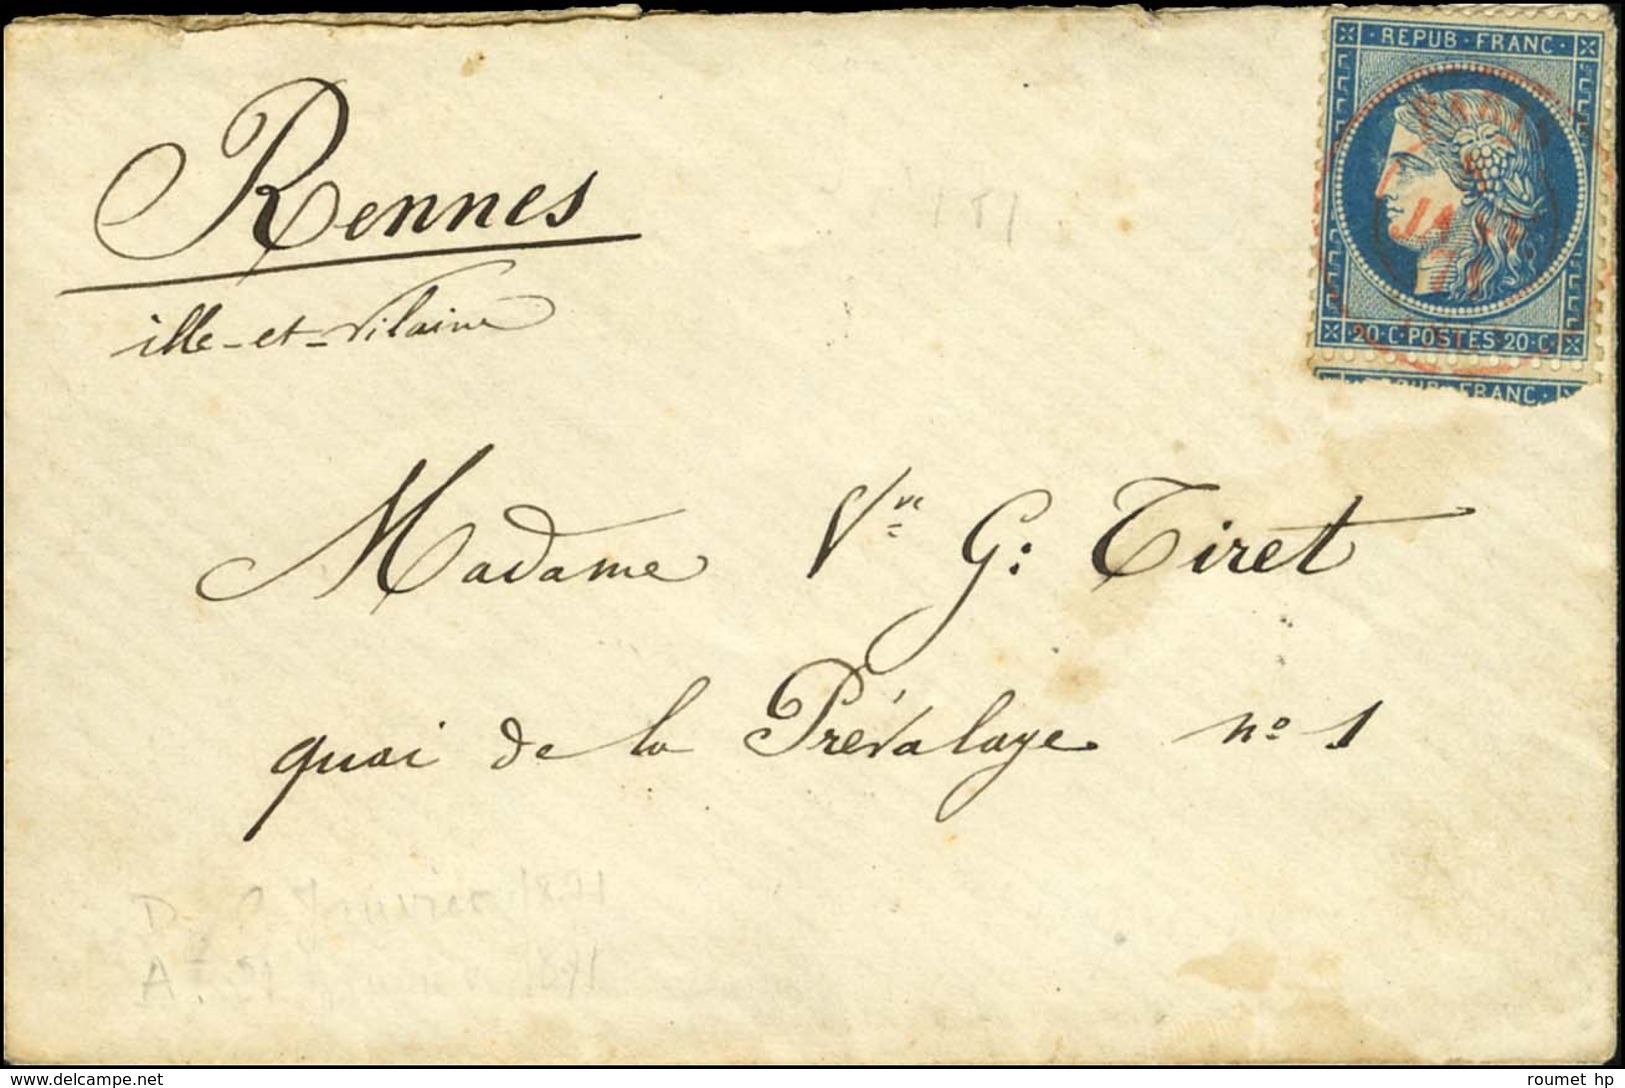 REPUB·FRANC·
PARIS
JA
71
20·C·POSTES 20·C·
FRANC·
Rennes
ille-et-Vilaine
Madame Vve G: Tiret
quai de la Prévalaye no 1
D. Janvier 1871
A. 1871
delcampe.net
roumet hp